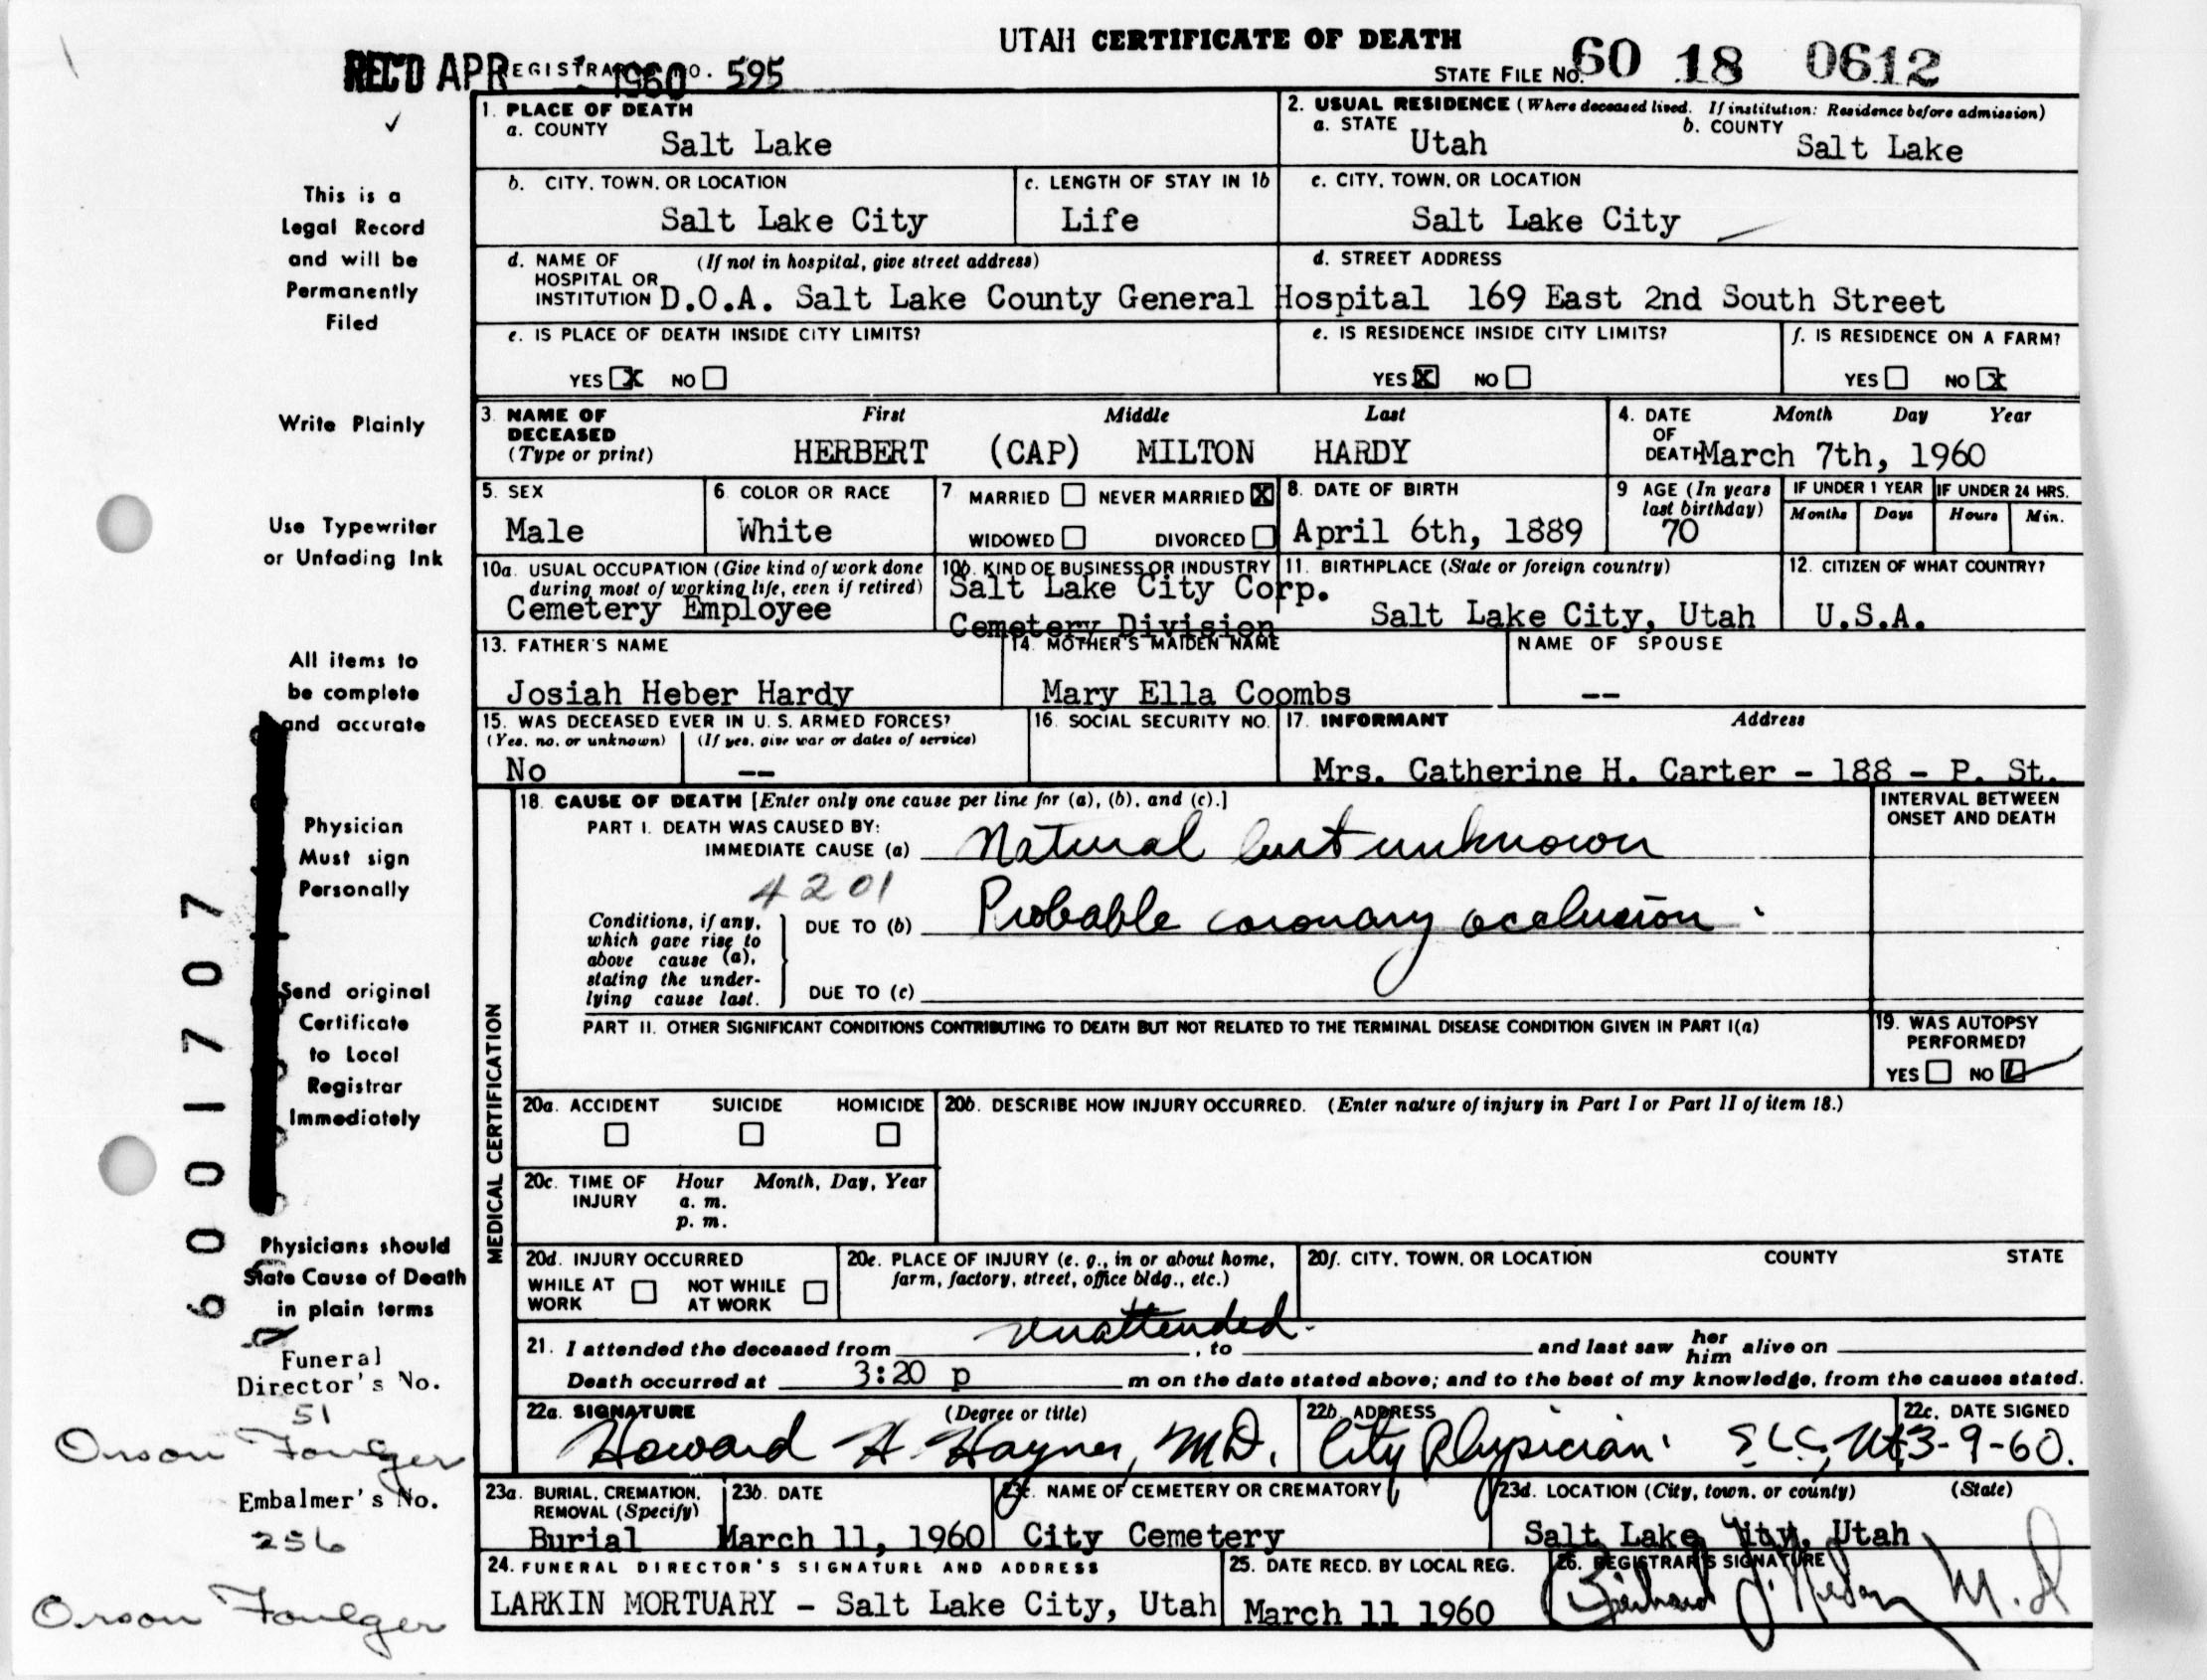 UTAH CERTIFICATE OF DEATH
REC'D APR 1960 REGISTRAR'S NO. 595
STATE FILE NO. 60 18 0612
✓
This is a
Legal Record
and will be
Permanently
Filed
Write Plainly
Use Typewriter
or Unfading Ink
All items to
be complete
and accurate
Physician
Must sign
Personally
Send original
Certificate
to Local
Registrar
Immediately
Physicians should
State Cause of Death
in plain terms
Funeral
Director's No.
51
Orson Foulger
Embalmer's No.
256
Orson Foulger
6001707
1. PLACE OF DEATH
a. COUNTY
Salt Lake
2. USUAL RESIDENCE (Where deceased lived. If institution: Residence before admission)
a. STATE b. COUNTY
Utah Salt Lake
b. CITY, TOWN, OR LOCATION
Salt Lake City
c. LENGTH OF STAY IN 1b
Life
c. CITY, TOWN, OR LOCATION
Salt Lake City
d. NAME OF (If not in hospital, give street address)
HOSPITAL OR
INSTITUTION D.O.A. Salt Lake County General Hospital
d. STREET ADDRESS
169 East 2nd South Street
e. IS PLACE OF DEATH INSIDE CITY LIMITS?
YES X NO
e. IS RESIDENCE INSIDE CITY LIMITS?
YES X NO
f. IS RESIDENCE ON A FARM?
YES NO X
3. NAME OF First Middle Last
DECEASED
(Type or print) HERBERT (CAP) MILTON HARDY
4. DATE Month Day Year
OF
DEATH March 7th, 1960
5. SEX
Male
6. COLOR OR RACE
White
7 MARRIED NEVER MARRIED X
WIDOWED DIVORCED
8. DATE OF BIRTH
April 6th, 1889
9 AGE (In years
last birthday)
70
IF UNDER 1 YEAR IF UNDER 24 HRS.
Months Days Hours Min.
10a. USUAL OCCUPATION (Give kind of work done
during most of working life, even if retired)
Cemetery Employee
10b. KIND OF BUSINESS OR INDUSTRY
Salt Lake City Corp.
Cemetery Division
11. BIRTHPLACE (State or foreign country)
Salt Lake City, Utah
12. CITIZEN OF WHAT COUNTRY?
U.S.A.
13. FATHER'S NAME
Josiah Heber Hardy
14. MOTHER'S MAIDEN NAME
Mary Ella Coombs
NAME OF SPOUSE
--
15. WAS DECEASED EVER IN U. S. ARMED FORCES?
(Yes, no, or unknown) (If yes, give war or dates of service)
No --
16. SOCIAL SECURITY NO.
17. INFORMANT Address
Mrs. Catherine H. Carter - 188 - P. St.
MEDICAL CERTIFICATION
18. CAUSE OF DEATH [Enter only one cause per line for (a), (b), and (c).]
INTERVAL BETWEEN
ONSET AND DEATH
PART I. DEATH WAS CAUSED BY:
IMMEDIATE CAUSE (a) Natural but unknown
4201
Conditions, if any,
which gave rise to
above cause (a),
stating the under-
lying cause last.
DUE TO (b) Probable coronary occlusion.
DUE TO (c)
PART II. OTHER SIGNIFICANT CONDITIONS CONTRIBUTING TO DEATH BUT NOT RELATED TO THE TERMINAL DISEASE CONDITION GIVEN IN PART I(a)
19. WAS AUTOPSY
PERFORMED?
YES NO ✓
20a. ACCIDENT SUICIDE HOMICIDE
20b. DESCRIBE HOW INJURY OCCURRED. (Enter nature of injury in Part I or Part II of item 18.)
20c. TIME OF Hour Month, Day, Year
INJURY a. m.
p. m.
20d. INJURY OCCURRED
WHILE AT NOT WHILE
WORK AT WORK
20e. PLACE OF INJURY (e. g., in or about home,
farm, factory, street, office bldg., etc.)
20f. CITY, TOWN, OR LOCATION COUNTY STATE
21. I attended the deceased from unattended. , to and last saw her him alive on
Death occurred at 3:20 p m on the date stated above; and to the best of my knowledge, from the causes stated.
22a. SIGNATURE (Degree or title)
Howard H Haynes, M.D.
22b. ADDRESS
City Physician S.L.C., Ut
22c. DATE SIGNED
3-9-60.
23a. BURIAL, CREMATION,
REMOVAL (Specify)
Burial
23b. DATE
March 11, 1960
23c. NAME OF CEMETERY OR CREMATORY
City Cemetery
23d. LOCATION (City, town, or county) (State)
Salt Lake City, Utah
24. FUNERAL DIRECTOR'S SIGNATURE AND ADDRESS
LARKIN MORTUARY - Salt Lake City, Utah
25. DATE RECD. BY LOCAL REG.
March 11 1960
26. REGISTRAR'S SIGNATURE
M.D